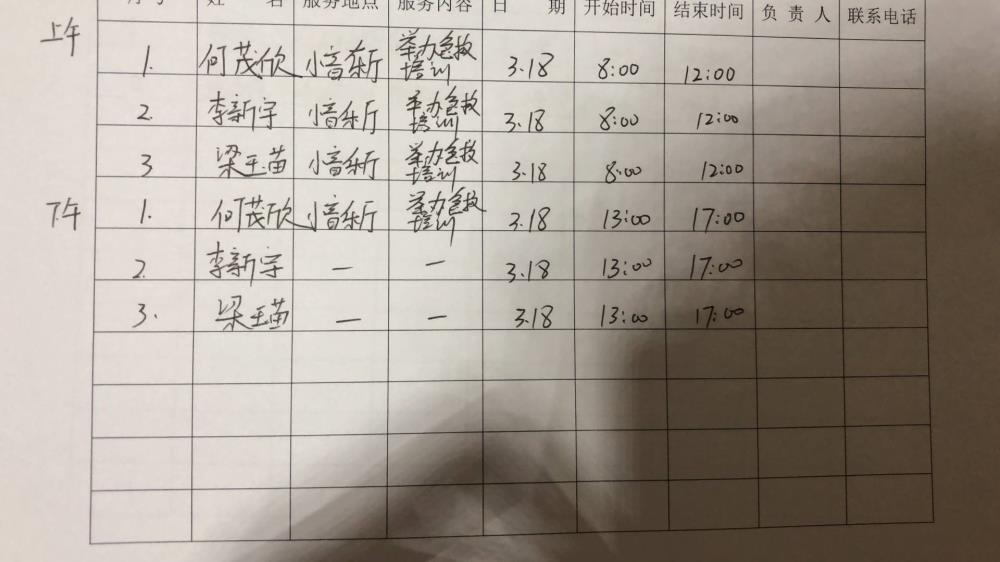 序号 姓 名 服务地点 服务内容 日 期 开始时间 结束时间 负 责 人 联系电话
上午
1. 何茂欣 小音乐厅 举办急救培训 3.18 8:00 12:00
2. 李新宇 小音乐厅 举办急救培训 3.18 8:00 12:00
3 梁玉苗 小音乐厅 举办急救培训 3.18 8:00 12:00
下午
1. 何茂欣 小音乐厅 举办急救培训 3.18 13:00 17:00
2. 李新宇 — — 3.18 13:00 17:00
3. 梁玉苗 — — 3.18 13:00 17:00